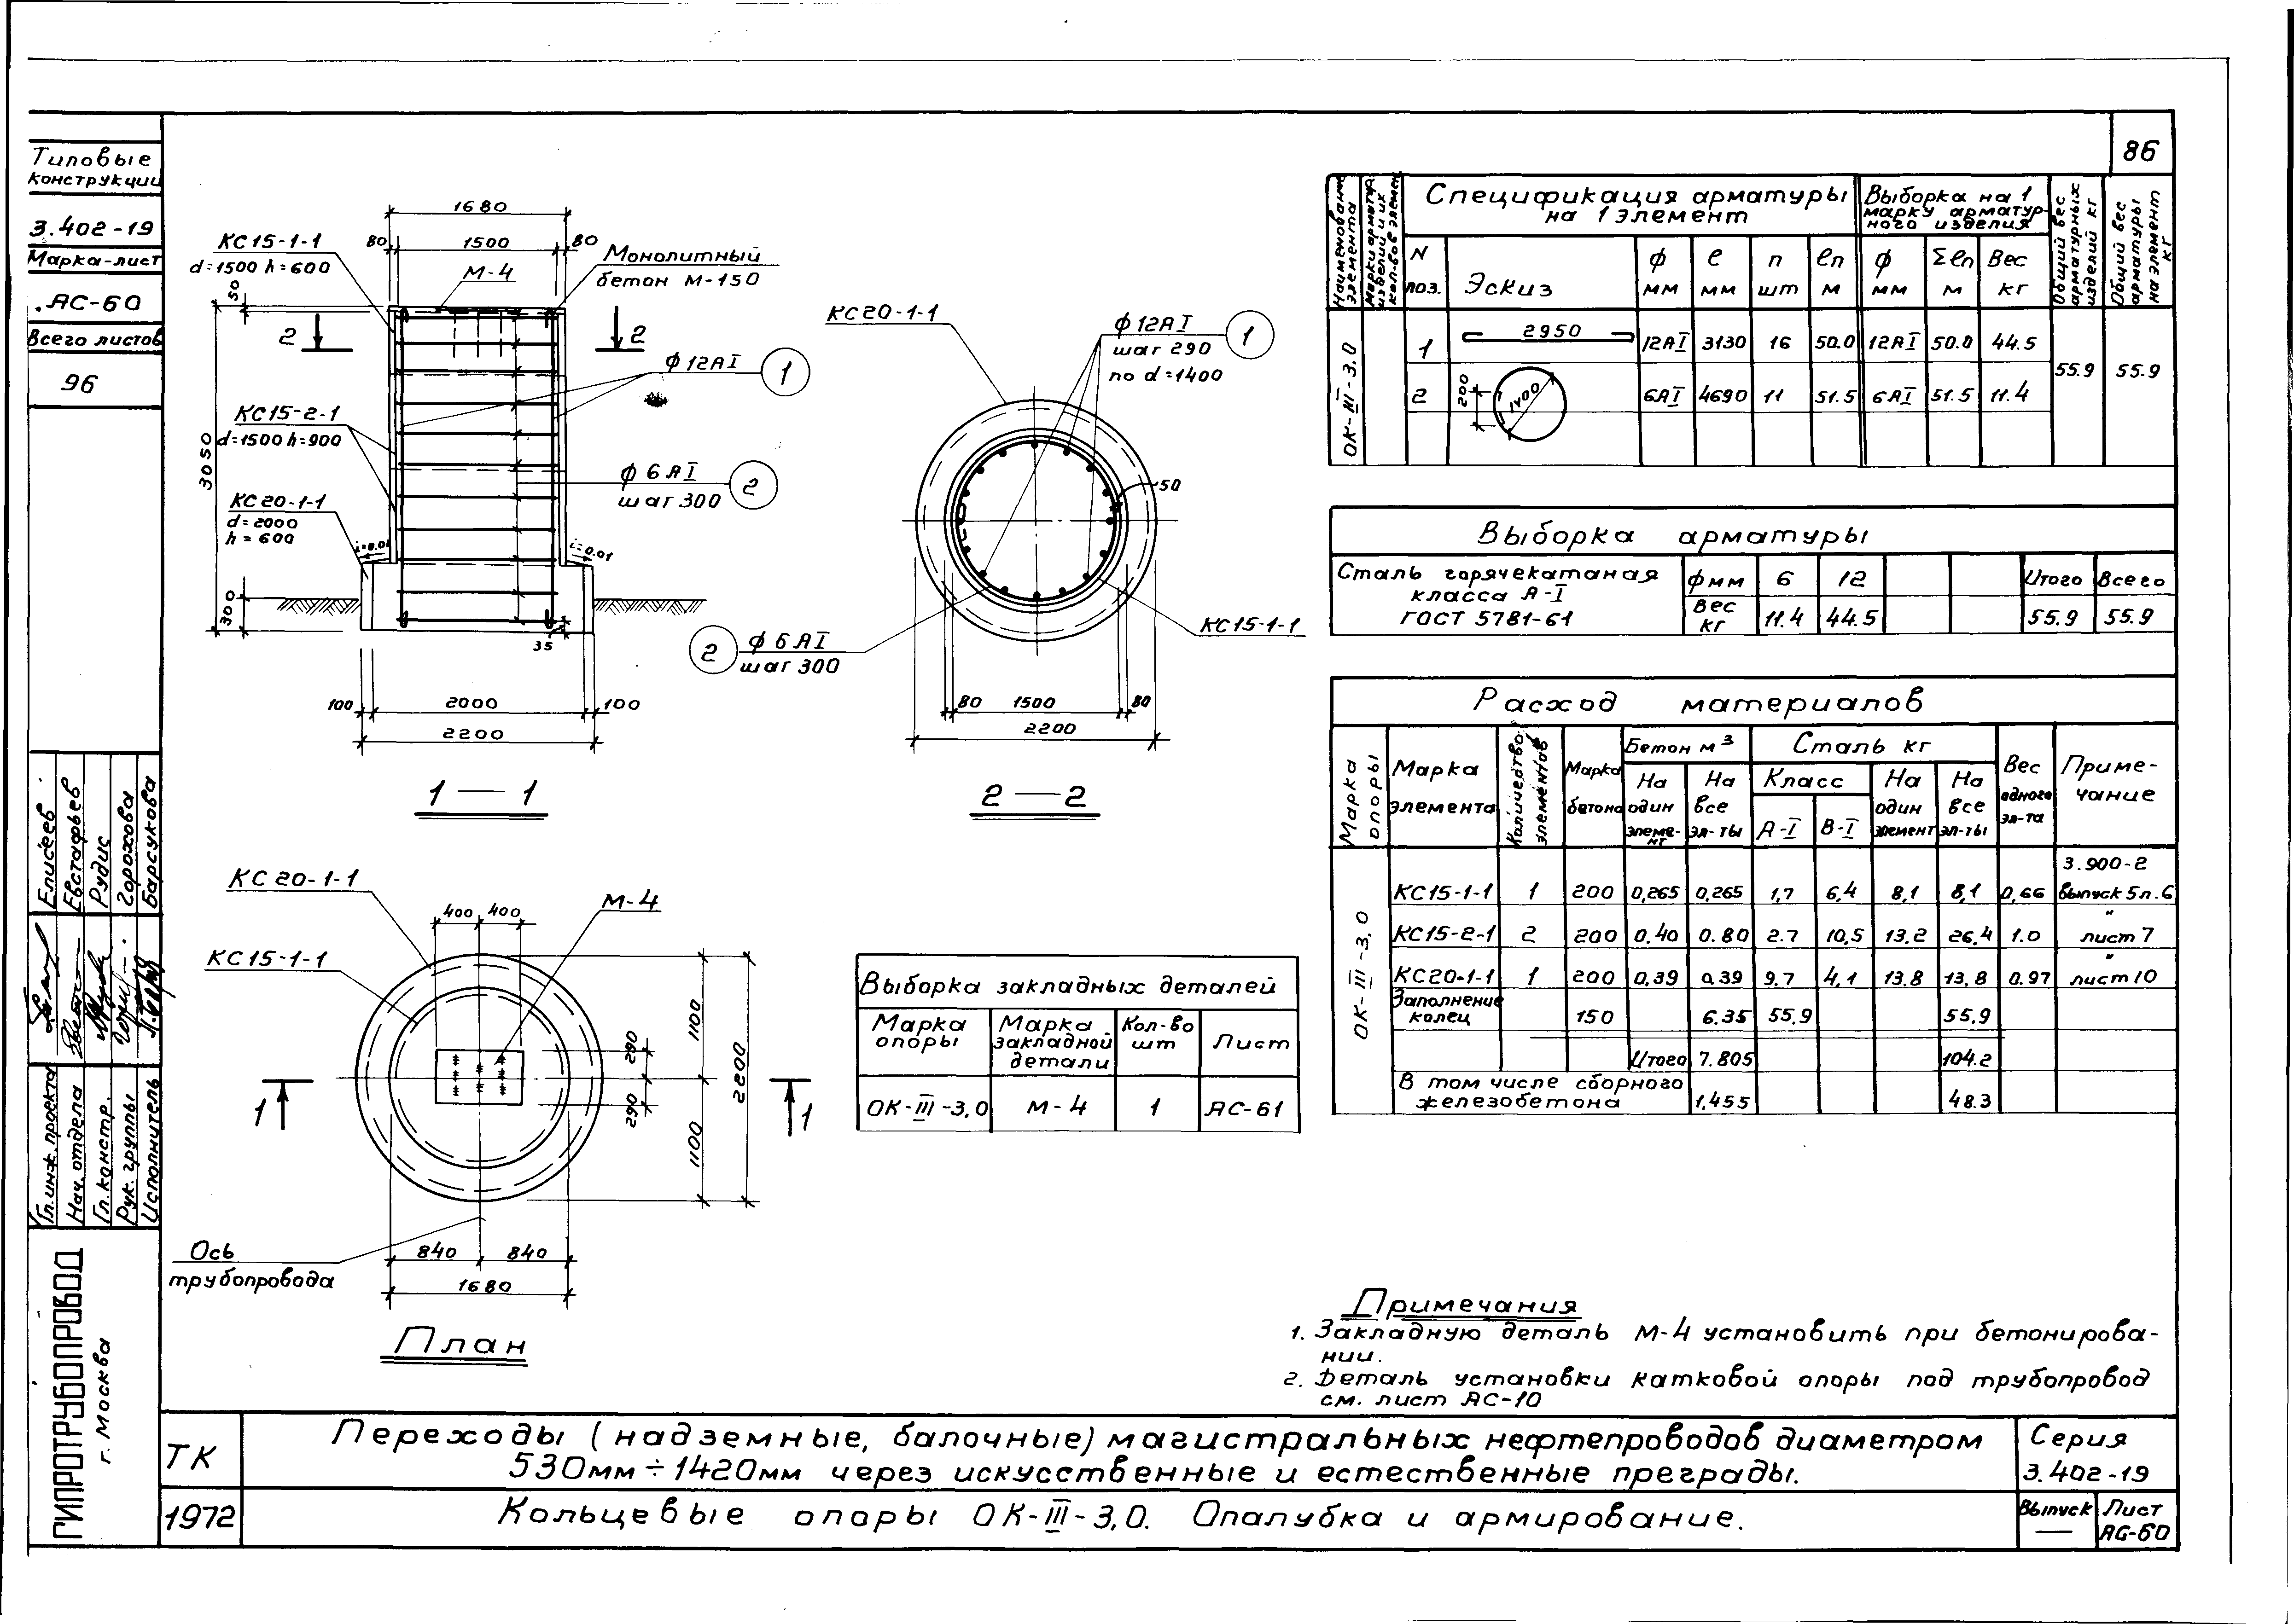 86
Типовые
конструкции
3.402-19
Марка-лист
АС-60
Всего листов
96
Елисеев
Евстафьев
Рудис
Горохова
Барсукова
Гл.инж.проекта
Нач.отдела
Гл.констр.
Рук.группы
Исполнитель
ГИПРОТРУБОПРОВОД
г. Москва
1680
80 1500 80
КС15-1-1
d=1500 h=600
М-4
Монолитный
бетон М-150
50
2 2
ф12АI 1
КС15-2-1
d=1500 h=900
3050
ф6АI
шаг 300 2
КС20-1-1
d=2000
h=600
i=0.01 i=0.01
300
35
100 2000 100
2200
1 — 1
КС20-1-1
ф12АI 1
шаг 290
по d=1400
50
КС15-1-1
2 ф6АI
шаг 300
80 1500 80
2200
2 — 2
КС20-1-1
КС15-1-1
М-4
400 400
290
290
1100
1100
2200
1 1
Ось
трубопровода
840 840
1680
План
Выборка закладных деталей
Марка опоры | Марка закладной детали | Кол-во шт | Лист
ОК-III-3,0 | М-4 | 1 | АС-61
Наименование элемента
Марки арматур. изделий и их кол-во в элемен.
Спецификация арматуры
на 1 элемент
Выборка на 1
марку арматур-
ного изделия
Общий вес арматурных изделий кг
Общий вес арматуры на элемент кг
N поз. | Эскиз | ф мм | ℓ мм | n шт | ℓn м | ф мм | Σℓn м | Вес кг
ОК-III-3,0
1 | 2950 | 12АI | 3130 | 16 | 50.0 | 12АI | 50.0 | 44.5
55.9 55.9
2 | 200 1400 | 6АI | 4690 | 11 | 51.5 | 6АI | 51.5 | 11.4
Выборка арматуры
Сталь горячекатаная
класса А-I
ГОСТ 5781-61
фмм | 6 | 12 | Итого | Всего
Вес кг | 11.4 | 44.5 | 55.9 | 55.9
Расход материалов
Марка опоры | Марка элемента | Количество элементов | Марка бетона | Бетон м3 | Сталь кг | Вес одного эл-та | Приме-чание
На один элеме-нт | На все эл-ты | Класс | На один элемент | На все эл-ты
А-I | В-I
ОК-III-3,0
3.900-2
КС15-1-1 | 1 | 200 | 0,265 | 0,265 | 1,7 | 6,4 | 8,1 | 8,1 | 0,66 | выпуск 5 л.6
"
КС15-2-1 | 2 | 200 | 0.40 | 0.80 | 2.7 | 10,5 | 13.2 | 26.4 | 1.0 | лист 7
"
КС20-1-1 | 1 | 200 | 0,39 | 0.39 | 9.7 | 4,1 | 13.8 | 13,8 | 0.97 | лист 10
Заполнение
колец | 150 | 6.35 | 55.9 | 55.9
Итого | 7.805 | 104.2
В том числе сборного
железобетона | 1,455 | 48.3
Примечания
1. Закладную деталь М-4 установить при бетонирова-
нии.
2. Деталь установки катковой опоры под трубопровод
см. лист АС-10
ТК
Переходы (надземные, балочные) магистральных нефтепроводов диаметром
530мм÷1420мм через искусственные и естественные преграды.
Серия
3.402-19
1972
Кольцевые опоры ОК-III-3,0. Опалубка и армирование.
Выпуск
—
Лист
АС-60